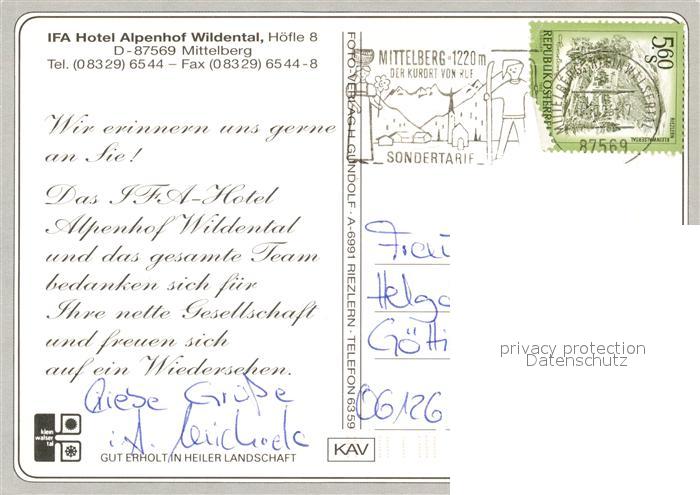 IFA Hotel Alpenhof Wildental, Höfle 8
D-87569 Mittelberg
Tel. (08329) 6544 – Fax (08329) 6544-8
Wir erinnern uns gerne
an Sie!
Das IFA-Hotel
Alpenhof Wildental
und das gesamte Team
bedanken sich für
Ihre nette Gesellschaft
und freuen sich
auf ein Wiedersehen.
Liebe Grüße
i.A.
klein
walser
tal
GUT ERHOLT IN HEILER LANDSCHAFT
FOTO VERLAG H. GUNDOLF · A-6991 RIEZLERN · TELEFON 6359
KAV
MITTELBERG · 1220 m
DER KURORT VON RUF
SONDERTARIF
5.60
S
REPUBLIK ÖSTERREICH
87569
Frau
Helga
Götti
06126
privacy protection
Datenschutz